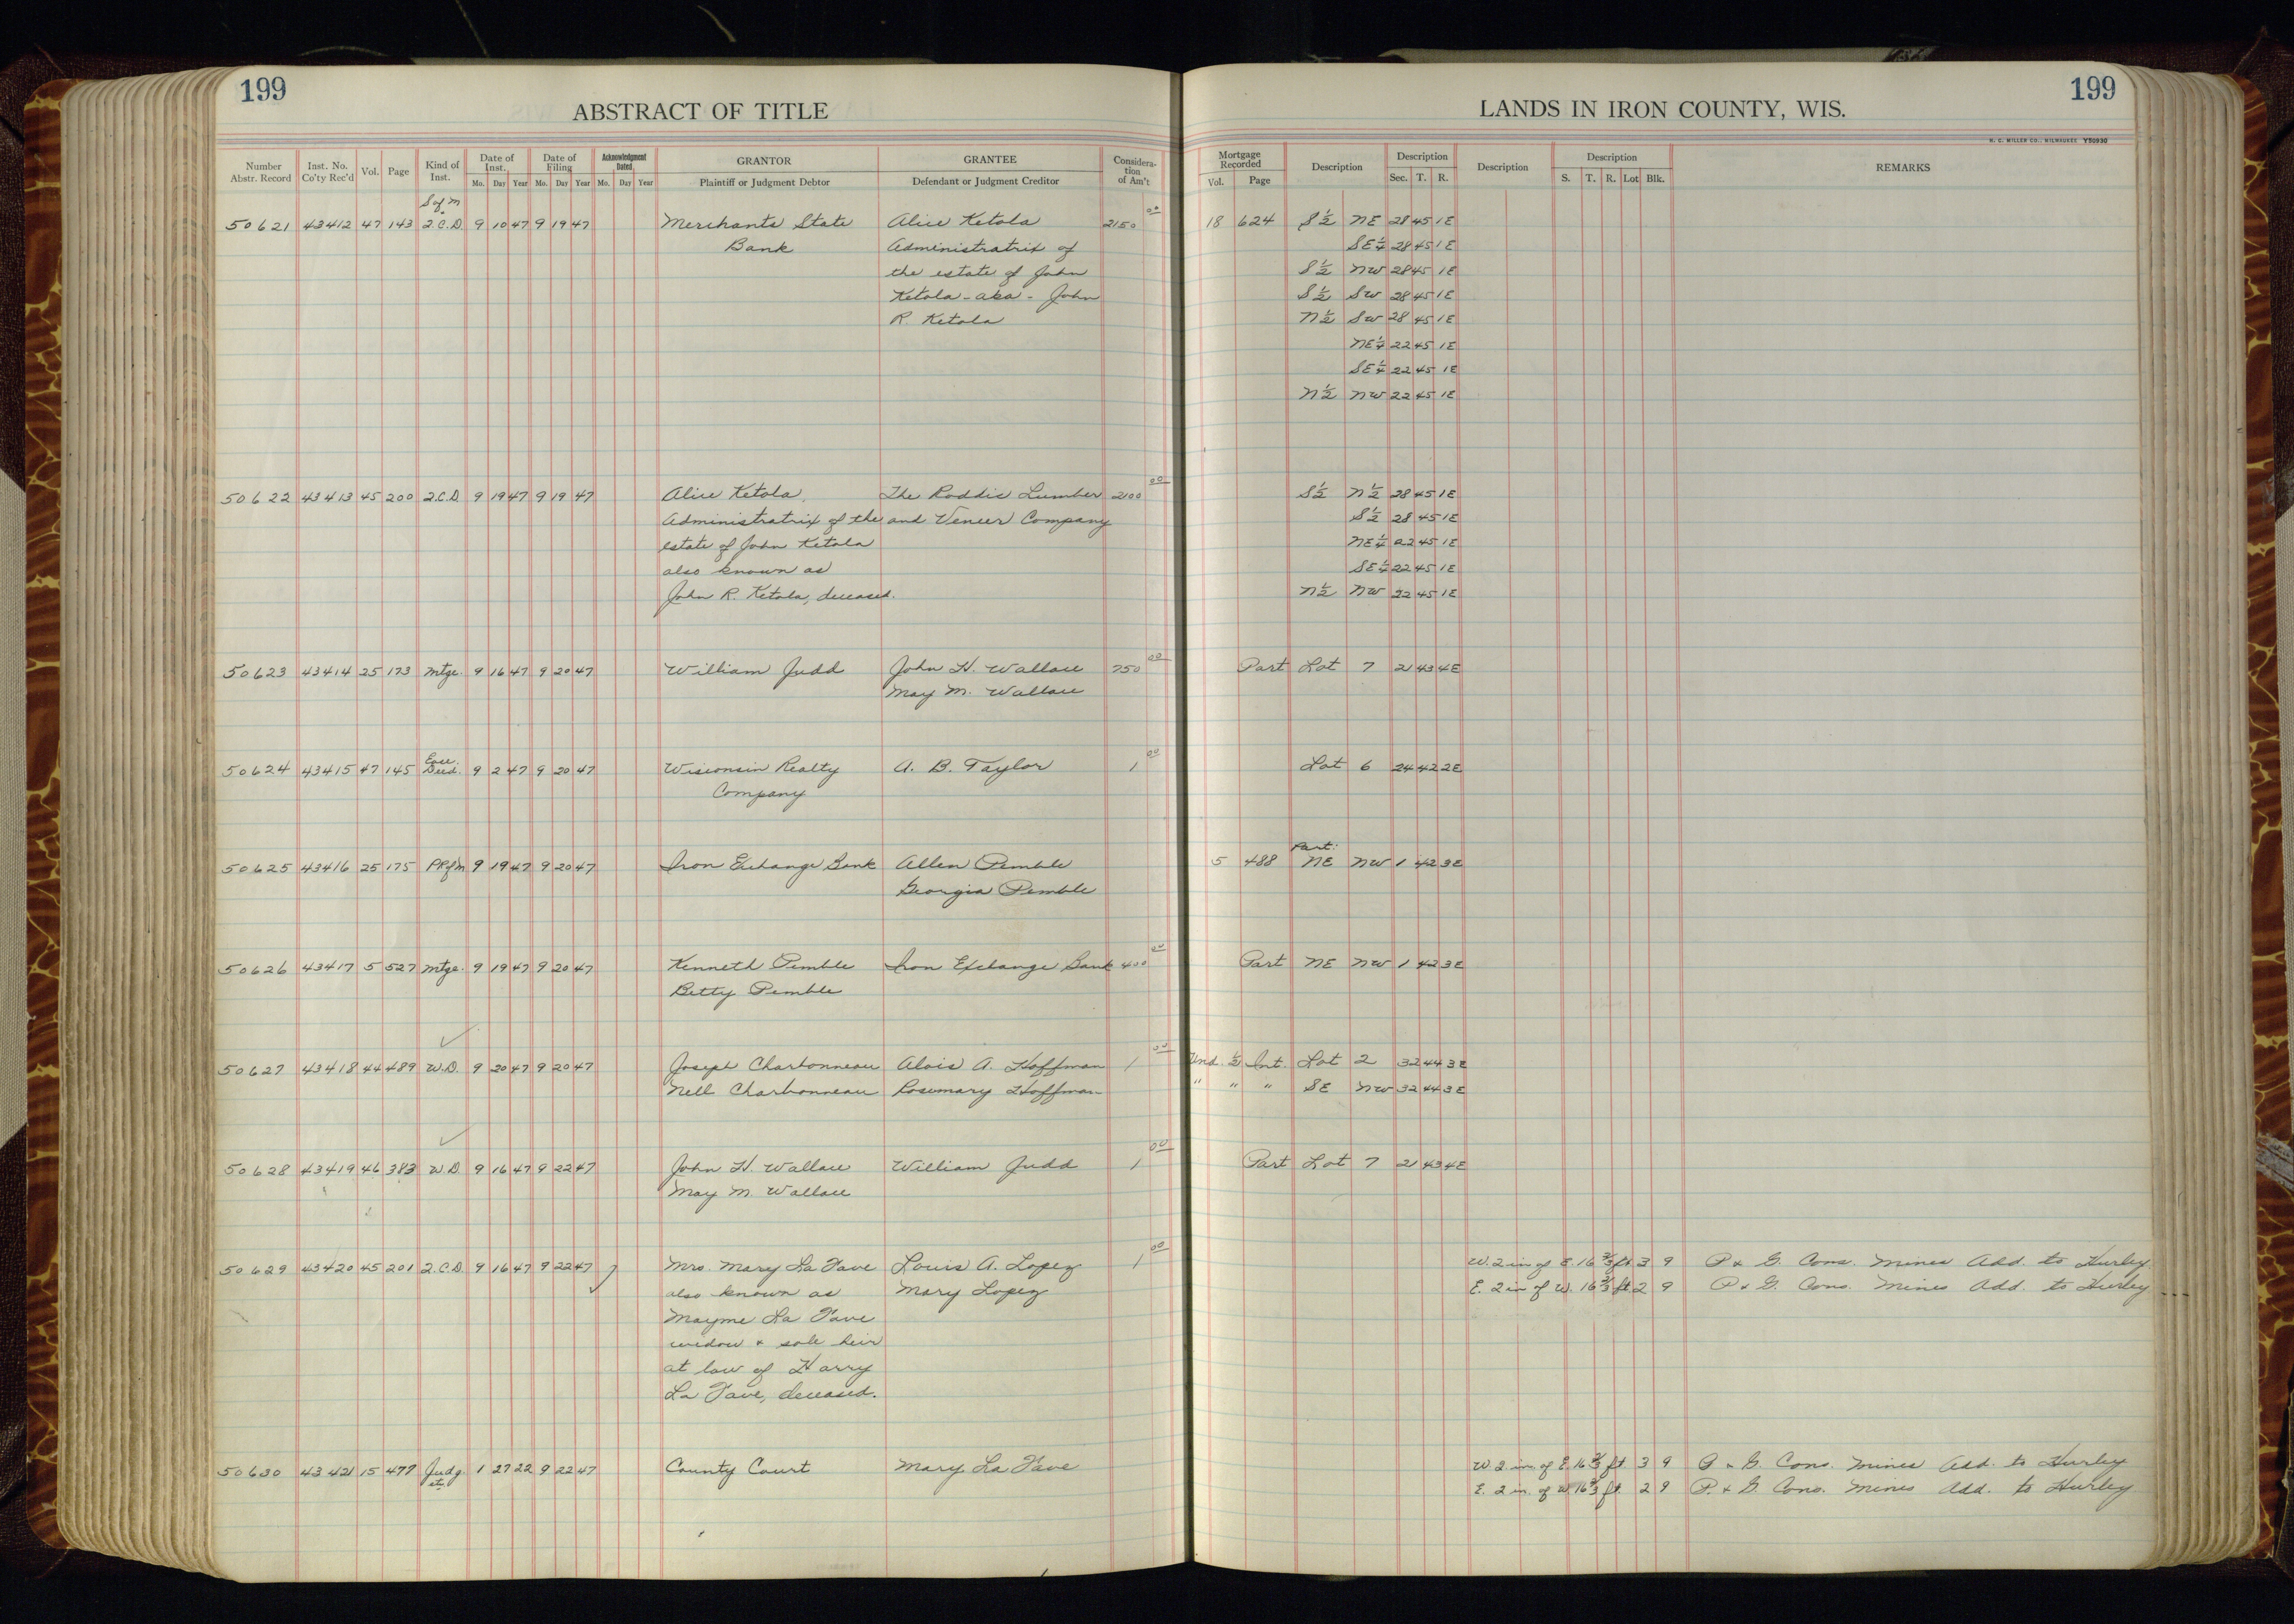 199
ABSTRACT OF TITLE
LANDS IN IRON COUNTY, WIS.
199
H. C. MILLER CO., MILWAUKEE Y50930
Number Abstr. Record | Inst. No. Co'ty Rec'd | Vol. | Page | Kind of Inst. | Date of Inst. Mo. Day Year | Date of Filing Mo. Day Year | Acknowledgment Dated Mo. Day Year | GRANTOR Plaintiff or Judgment Debtor | GRANTEE Defendant or Judgment Creditor | Considera- tion of Am't | Mortgage Recorded Vol. Page | Description | Description Sec. T. R. | Description | Description S. T. R. Lot Blk. | REMARKS
S of M
50621 43412 47 143 2.C.D. 9 10 47 9 19 47 Merchants State Alice Ketola 2150 00 18 624 S 1/2 NE 28 45 1E
Bank Administratrix of SE 1/4 28 45 1E
the estate of John S 1/2 NW 28 45 1E
Ketola - aka - John S 1/2 SW 28 45 1E
R. Ketola N 1/2 SW 28 45 1E
NE 1/4 22 45 1E
SE 1/4 22 45 1E
N 1/2 NW 22 45 1E
50622 43413 45 200 2.C.D. 9 19 47 9 19 47 Alice Ketola, The Roddis Lumber 2100 00 S 1/2 N 1/2 28 45 1E
Administratrix of the and Veneer Company S 1/2 28 45 1E
estate of John Ketola NE 1/4 22 45 1E
also known as SE 1/4 22 45 1E
John R. Ketola, deceased. N 1/2 NW 22 45 1E
50623 43414 25 173 Mtge. 9 16 47 9 20 47 William Judd John H. Wallace 750 00 Part Lot 7 21 43 4E
May M. Wallace
50624 43415 47 145 Deed. 9 2 47 9 20 47 Wisconsin Realty A. B. Taylor 1 00 Lot 6 24 42 2E
Company
Part:
50625 43416 25 175 PR of M 9 19 47 9 20 47 Iron Exchange Bank Allen Pemble 5 488 NE NW 1 42 3E
Georgia Pemble
50626 43417 5 527 Mtge. 9 19 47 9 20 47 Kenneth Pemble Iron Exchange Bank 400 00 Part NE NW 1 42 3E
Betty Pemble
50627 43418 44 489 W.D. 9 20 47 9 20 47 Joseph Charbonneau Alois A. Hoffman 1 00 Und. 1/2 Int. Lot 2 32 44 3E
Nell Charbonneau Rosemary Hoffman " " " SE NW 32 44 3E
50628 43419 46 383 W.D. 9 16 47 9 22 47 John H. Wallace William Judd 1 00 Part Lot 7 21 43 4E
May M. Wallace
50629 43420 45 201 2.C.D. 9 16 47 9 22 47 Mrs. Mary La Fave Louis A. Lopez 1 00 W. 2 in of E. 16 2/3 ft. 3 9 P & G. Cons. Mines Add. to Hurley
also known as Mary Lopez E. 2 in of W. 16 2/3 ft. 2 9 P & G. Cons. Mines Add. to Hurley
Mayme La Fave
widow & sole heir
at law of Harry
La Fave, deceased.
50630 43421 15 477 Judg. 1 27 22 9 22 47 County Court Mary La Fave W. 2 in. of E. 16 2/3 ft. 3 9 P & G. Cons. Mines Add. to Hurley
E. 2 in. of W 16 2/3 ft. 2 9 P. & G. Cons. Mines Add. to Hurley